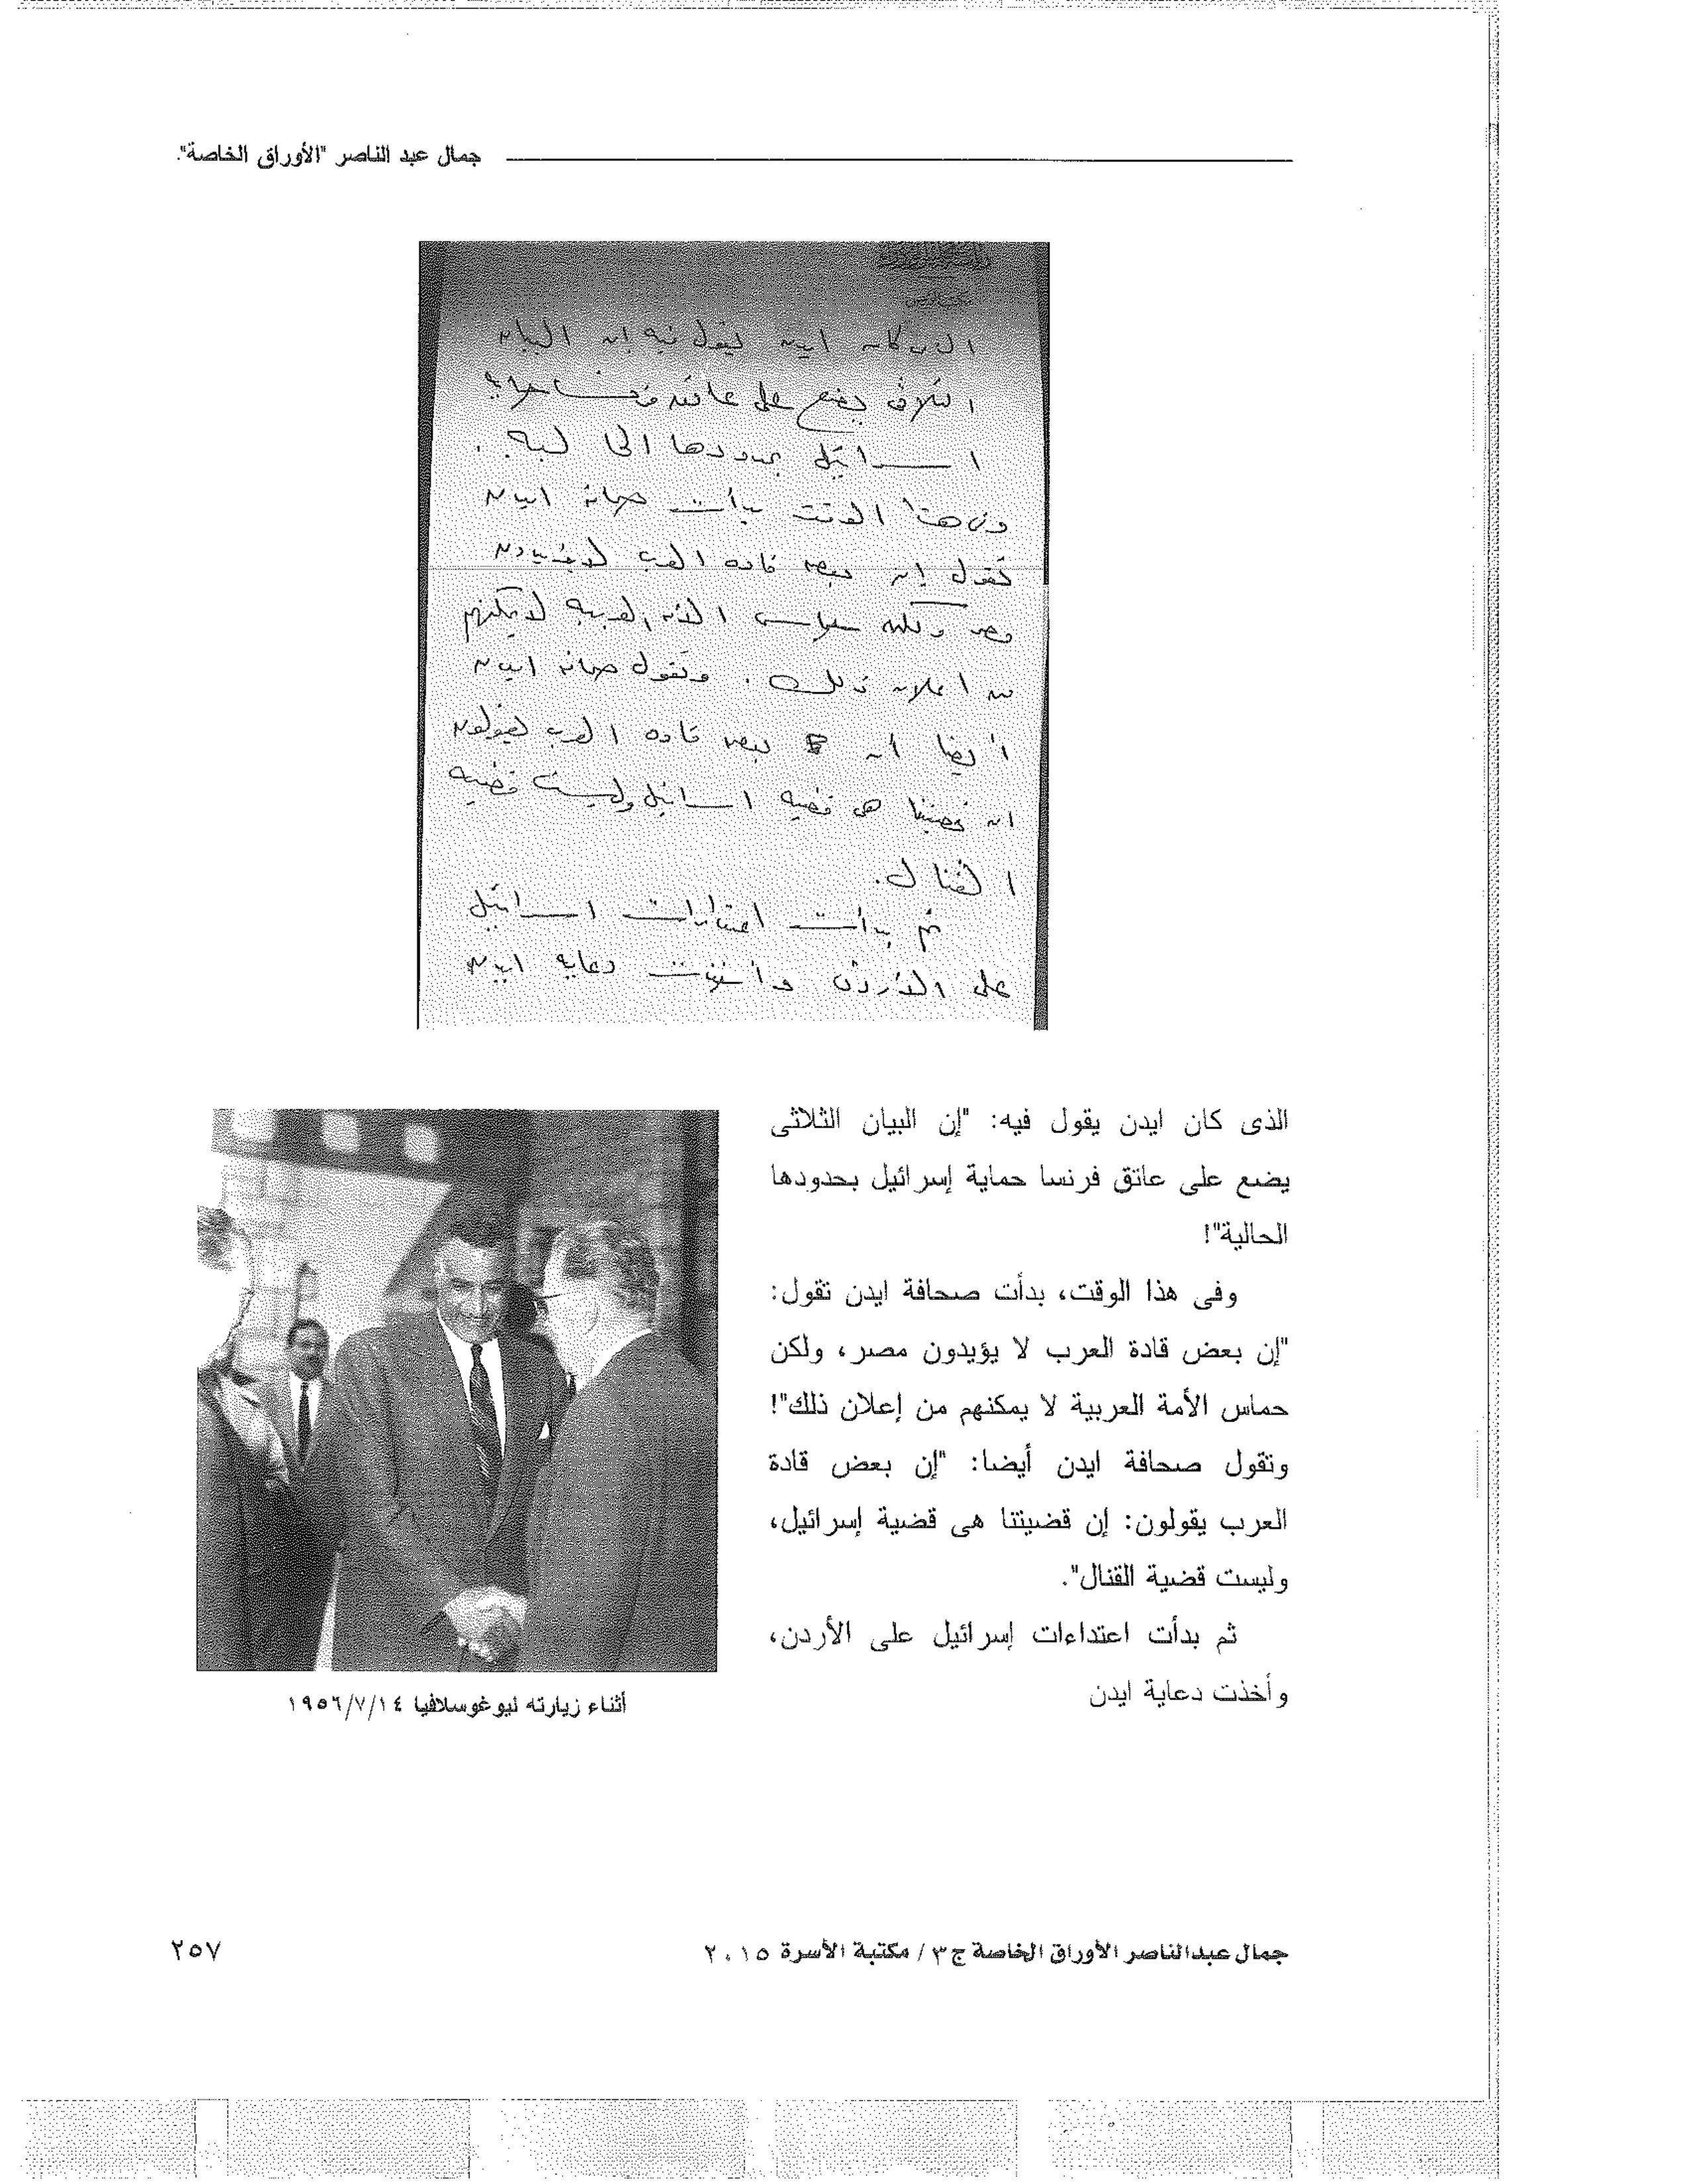 جمال عبد الناصر "الأوراق الخاصة".
مكتب الرئيس
الذى كان ايدن يقول فيه إن البيان
الثلاثى يضع على عاتق فرنسا حماية
اسرائيل بحدودها الحالية .
وفى هذا الوقت بدأت صحافة ايدن
تقول إن بعض قاده العرب لا يؤيدون
مصر ولكن حماس الأمه العربيه لا يمكنهم
من اعلان ذلك . وتقول صحافة ايدن
أيضا أن بعض قاده العرب يقولون
ان قضيتنا هى قضيه اسرائيل وليست قضيه
القنال .
ثم بدأت اعتداءات اسرائيل
على الأردن وأخذت دعايه ايدن
الذى كان ايدن يقول فيه: "إن البيان الثلاثى
يضع على عاتق فرنسا حماية إسرائيل بحدودها
الحالية"!
وفى هذا الوقت، بدأت صحافة ايدن تقول:
"إن بعض قادة العرب لا يؤيدون مصر، ولكن
حماس الأمة العربية لا يمكنهم من إعلان ذلك"!
وتقول صحافة ايدن أيضا: "إن بعض قادة
العرب يقولون: إن قضيتنا هى قضية إسرائيل،
وليست قضية القنال".
ثم بدأت اعتداءات إسرائيل على الأردن،
وأخذت دعاية ايدن
أثناء زيارته ليوغوسلافيا ١٩٥٦/٧/١٤
جمال عبدالناصر الأوراق الخاصة ج٣ / مكتبة الأسرة ٢٠١٥
٢٥٧